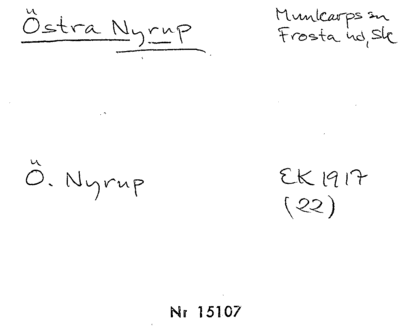 Östra Nyrup
Munkarps sn
Frosta hd, Sk
Ö. Nyrup
EK 1917
(22)
Nr 15107